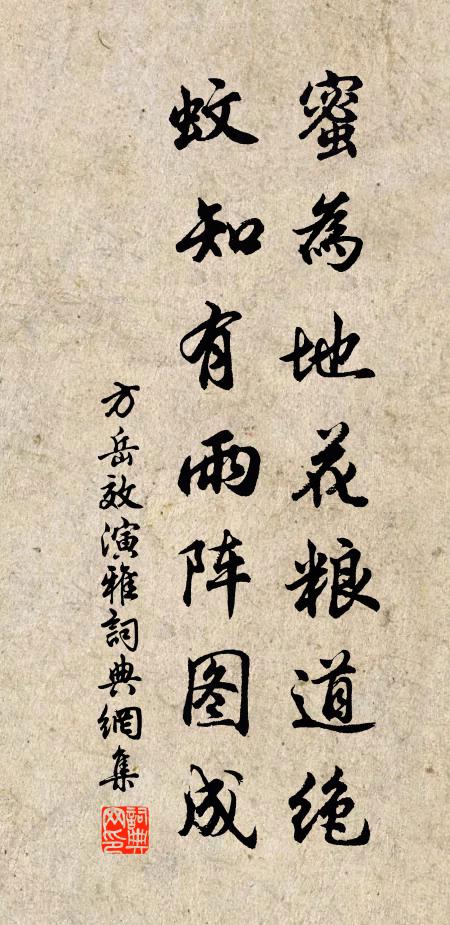 蜜為地花粮道绝
蚊知有雨阵图成
方岳效演雅詞典網集
詞典网印